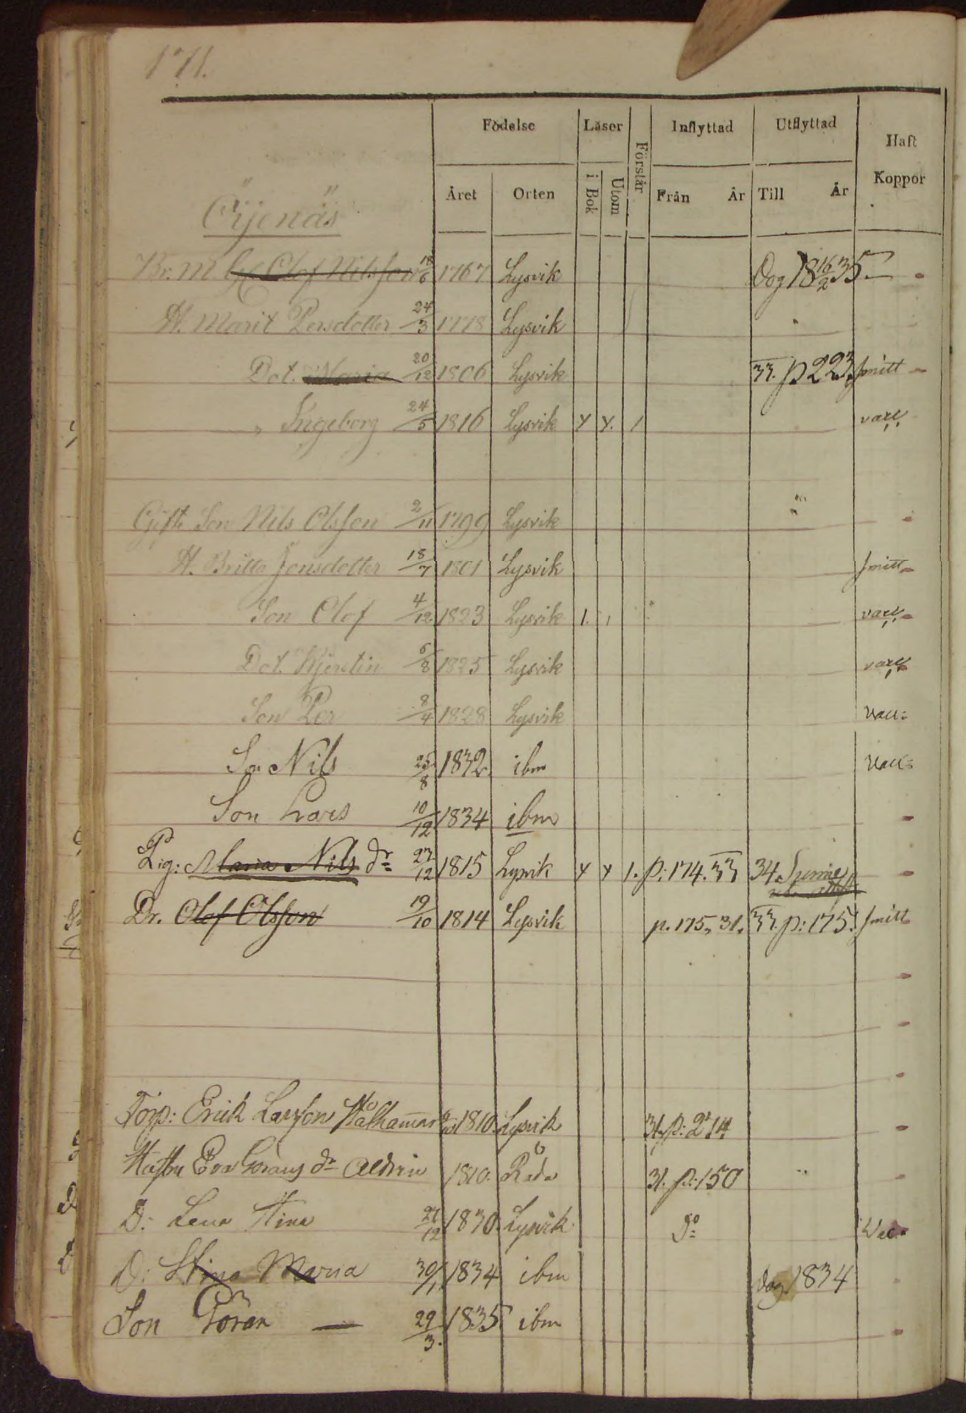 171.
Födelse Läser Förstår Inflyttad Utflyttad Haft Koppor
Året Orten i Bok Utom Från År Till År
Öijenäs
Br. M Olof Nilsson 1767 Lysvik Dog 18 16/2 35
H. Marit Persdotter 24/3 1778 Lysvik
Dot. Maria 20/12 1806 Lysvik 33. p 223 smitt
" Ingeborg 24/5 1816 Lysvik vacc.
Gift Son Nils Olsson 2/11 1799 Lysvik
H. Britta Jonsdotter 18/7 1801 Lysvik smitt
Son Olof 4/12 1823 Lysvik vacc.
Dot. Kjerstin 5/8 1825 Lysvik vacc.
Son Per 8/4 1828 Lysvik vacc.
Son Nils 25/8 1832 ibm vacc.
Son Lars 10/12 1834 ibm
Pig: Maria Nils dr 27/12 1815 Lysvik p: 174. 33 34
Dr. Olof Olsson 19/10 1814 Lysvik p. 175. 31. 33. p: 175. smitt
Torp: Erick Larsson 1810. Lysvik 31. p: 214
Hustru Eva Görans dr 1810. Råda 31. p: 150
D: Lena Stina 1830. Lysvik do Vac.
D: Stina Maria 30/1 1834 ibm dog 1834
Son Göran — 29/3. 1835 ibm